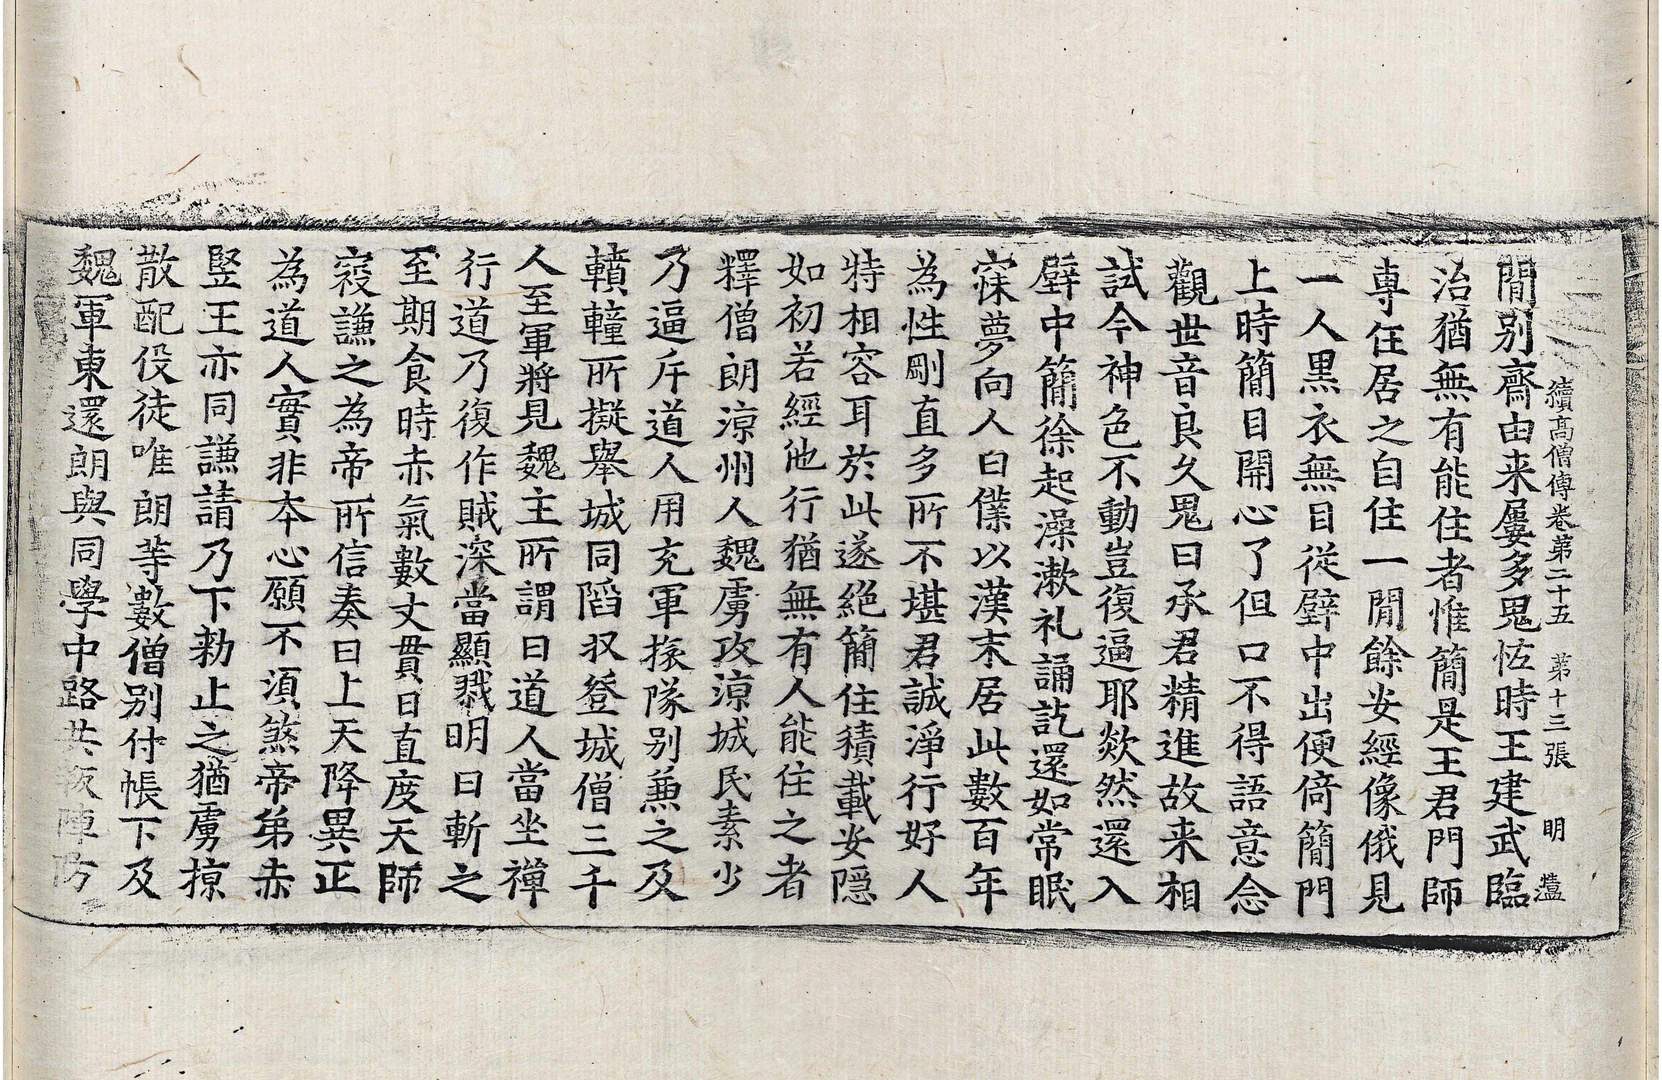 續高僧傳卷第二十五　第十三張　明
閒別齋由来屢多鬼恠時王建武臨
治猶無有能住者惟簡是王君門師
專任居之自住一閒餘安經像俄見
一人黒衣無目從壁中出便倚簡門
上時簡目開心了但口不得語意念
觀世音良久鬼曰承君精進故来相
試今神色不動豈復逼耶欻然還入
壁中簡徐起澡漱礼誦訖還如常眠
寐夢向人曰僕以漢末居此數百年
為性剛直多所不堪君誠淨行好人
特相容耳於此遂絕簡住積載安隱
如初若經他行猶無有人能住之者
釋僧朗涼州人魏虜攻涼城民素少
乃逼斥道人用充軍掾隊別兼之及
轒𨎦所擬舉城同陷収登城僧三千
人至軍將見魏主所謂曰道人當坐禪
行道乃復作賊深當顯戮明日斬之
至期食時赤氣數丈貫日直度天師
寇謙之為帝所信奏曰上天降異正
為道人實非本心願不湏煞帝弟赤
竪王亦同謙請乃下勑止之猶虜掠
散配役徒唯朗等數僧別付帳下及
魏軍東還朗與同學中路共叛陣防